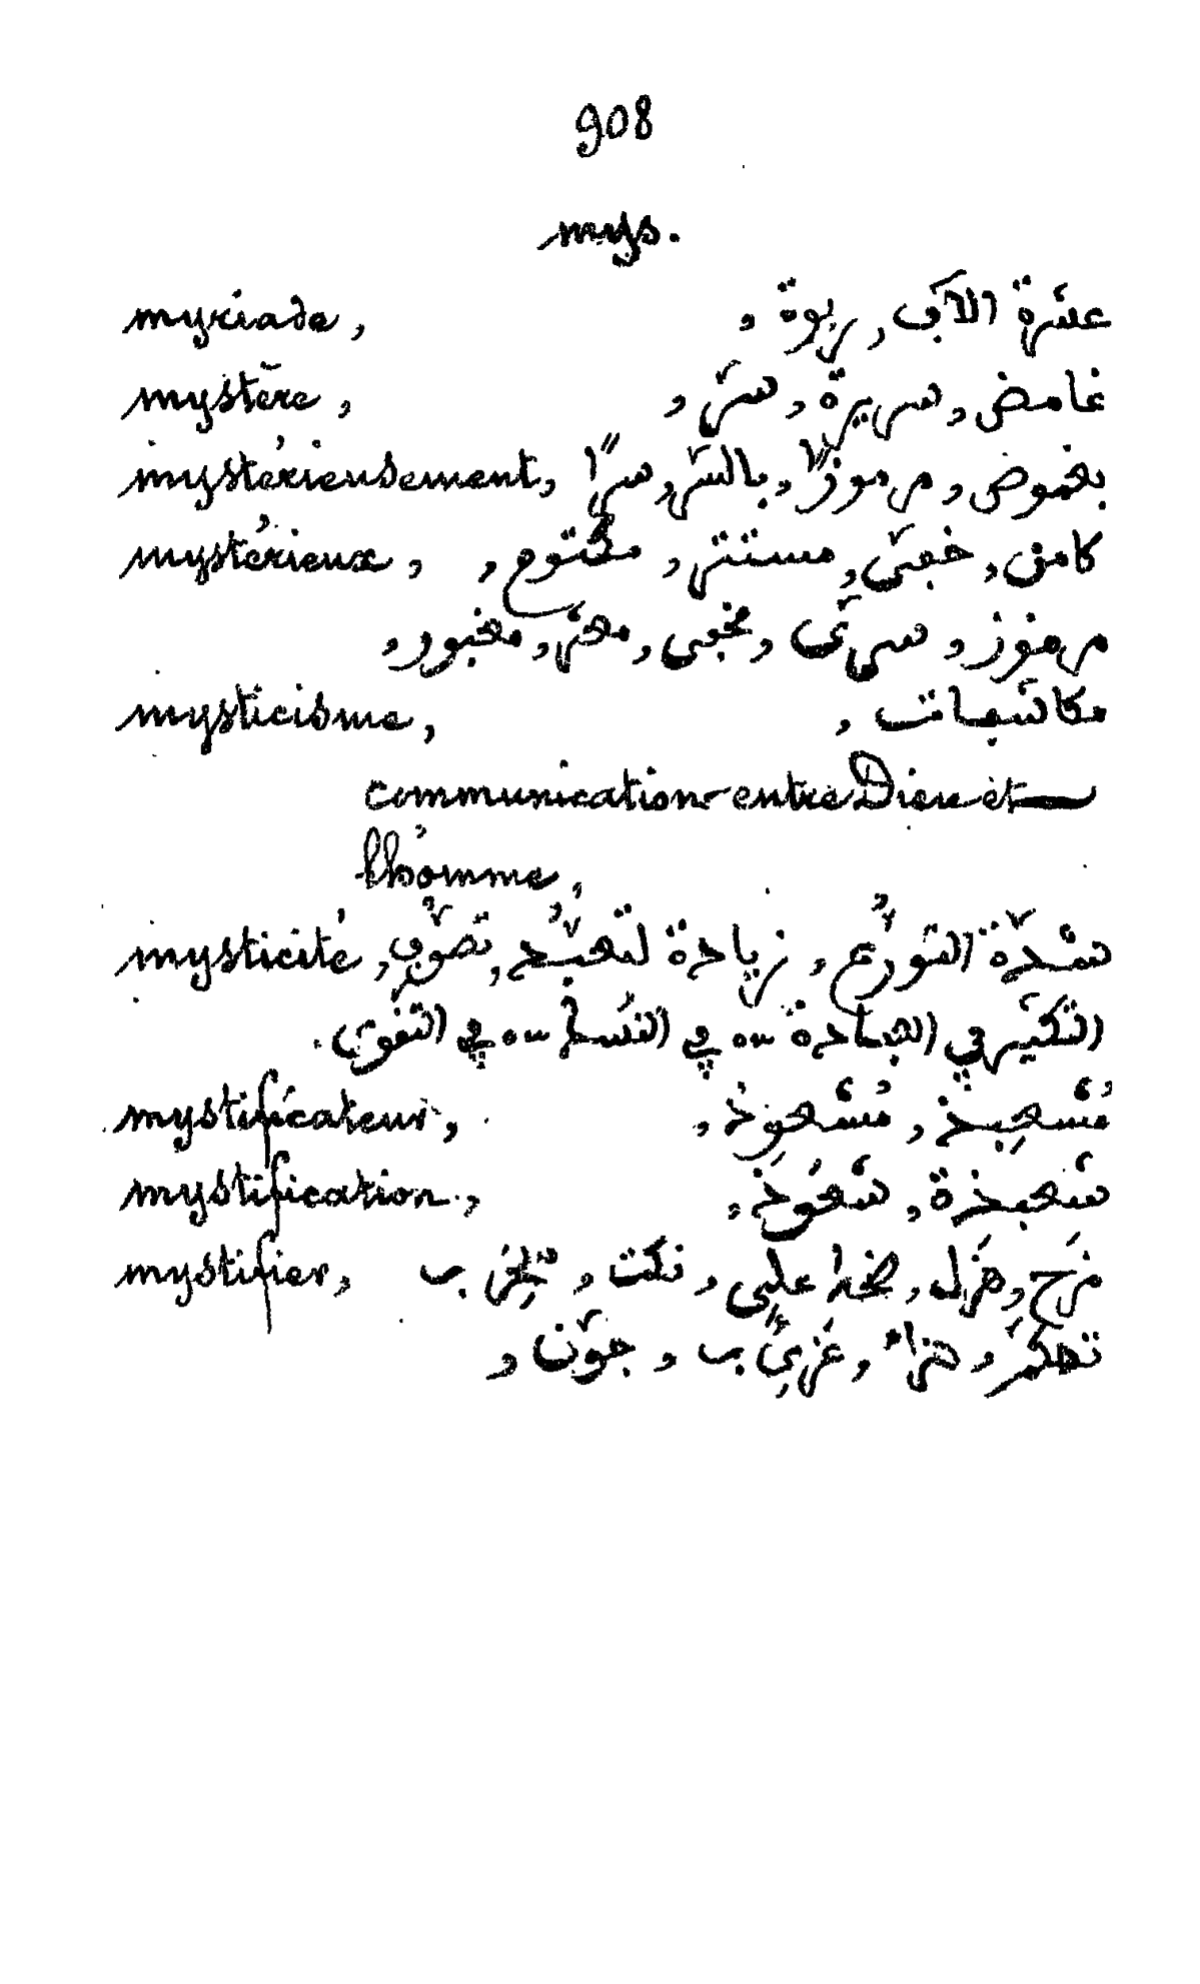 908
mys.
myriade, عشرة الآف, ربوة,
mystère, غامض, سريرة, سرّ,
mystérieusement, بغموض, مرموزًا, بالسّر, سرًّا
mystérieux, كامن, خفىّ, مستتر, مكتوم,
مرموز, سرىّ, مخفى,
mysticisme, مكاشفات,
communication entre Dieu et
l'homme,
mysticité, شدّة التورُّع, زيادة لتعبُّد, تصوّف,
التكثير في العبادة في في التقوى.
mystificateur, مُشَعبِذ, مُشَعوِذ,
mystification, شَعبذة, شَعوَذ,
mystifier, مَزَح, هَزَل, على, نكّت, ب
تهكّم, هزاء, ب, جوّن,